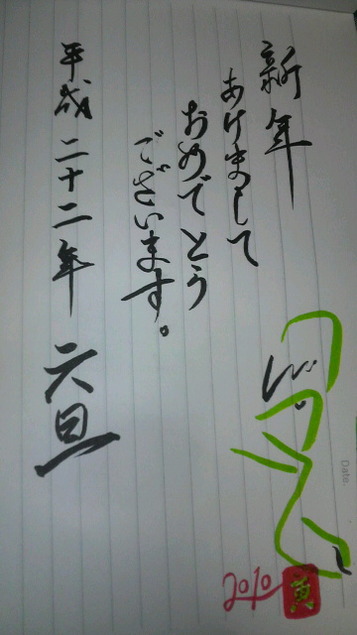 新年
あけまして
おめでとう
ございます。
平成二十二年 元旦
2010
寅
Date.